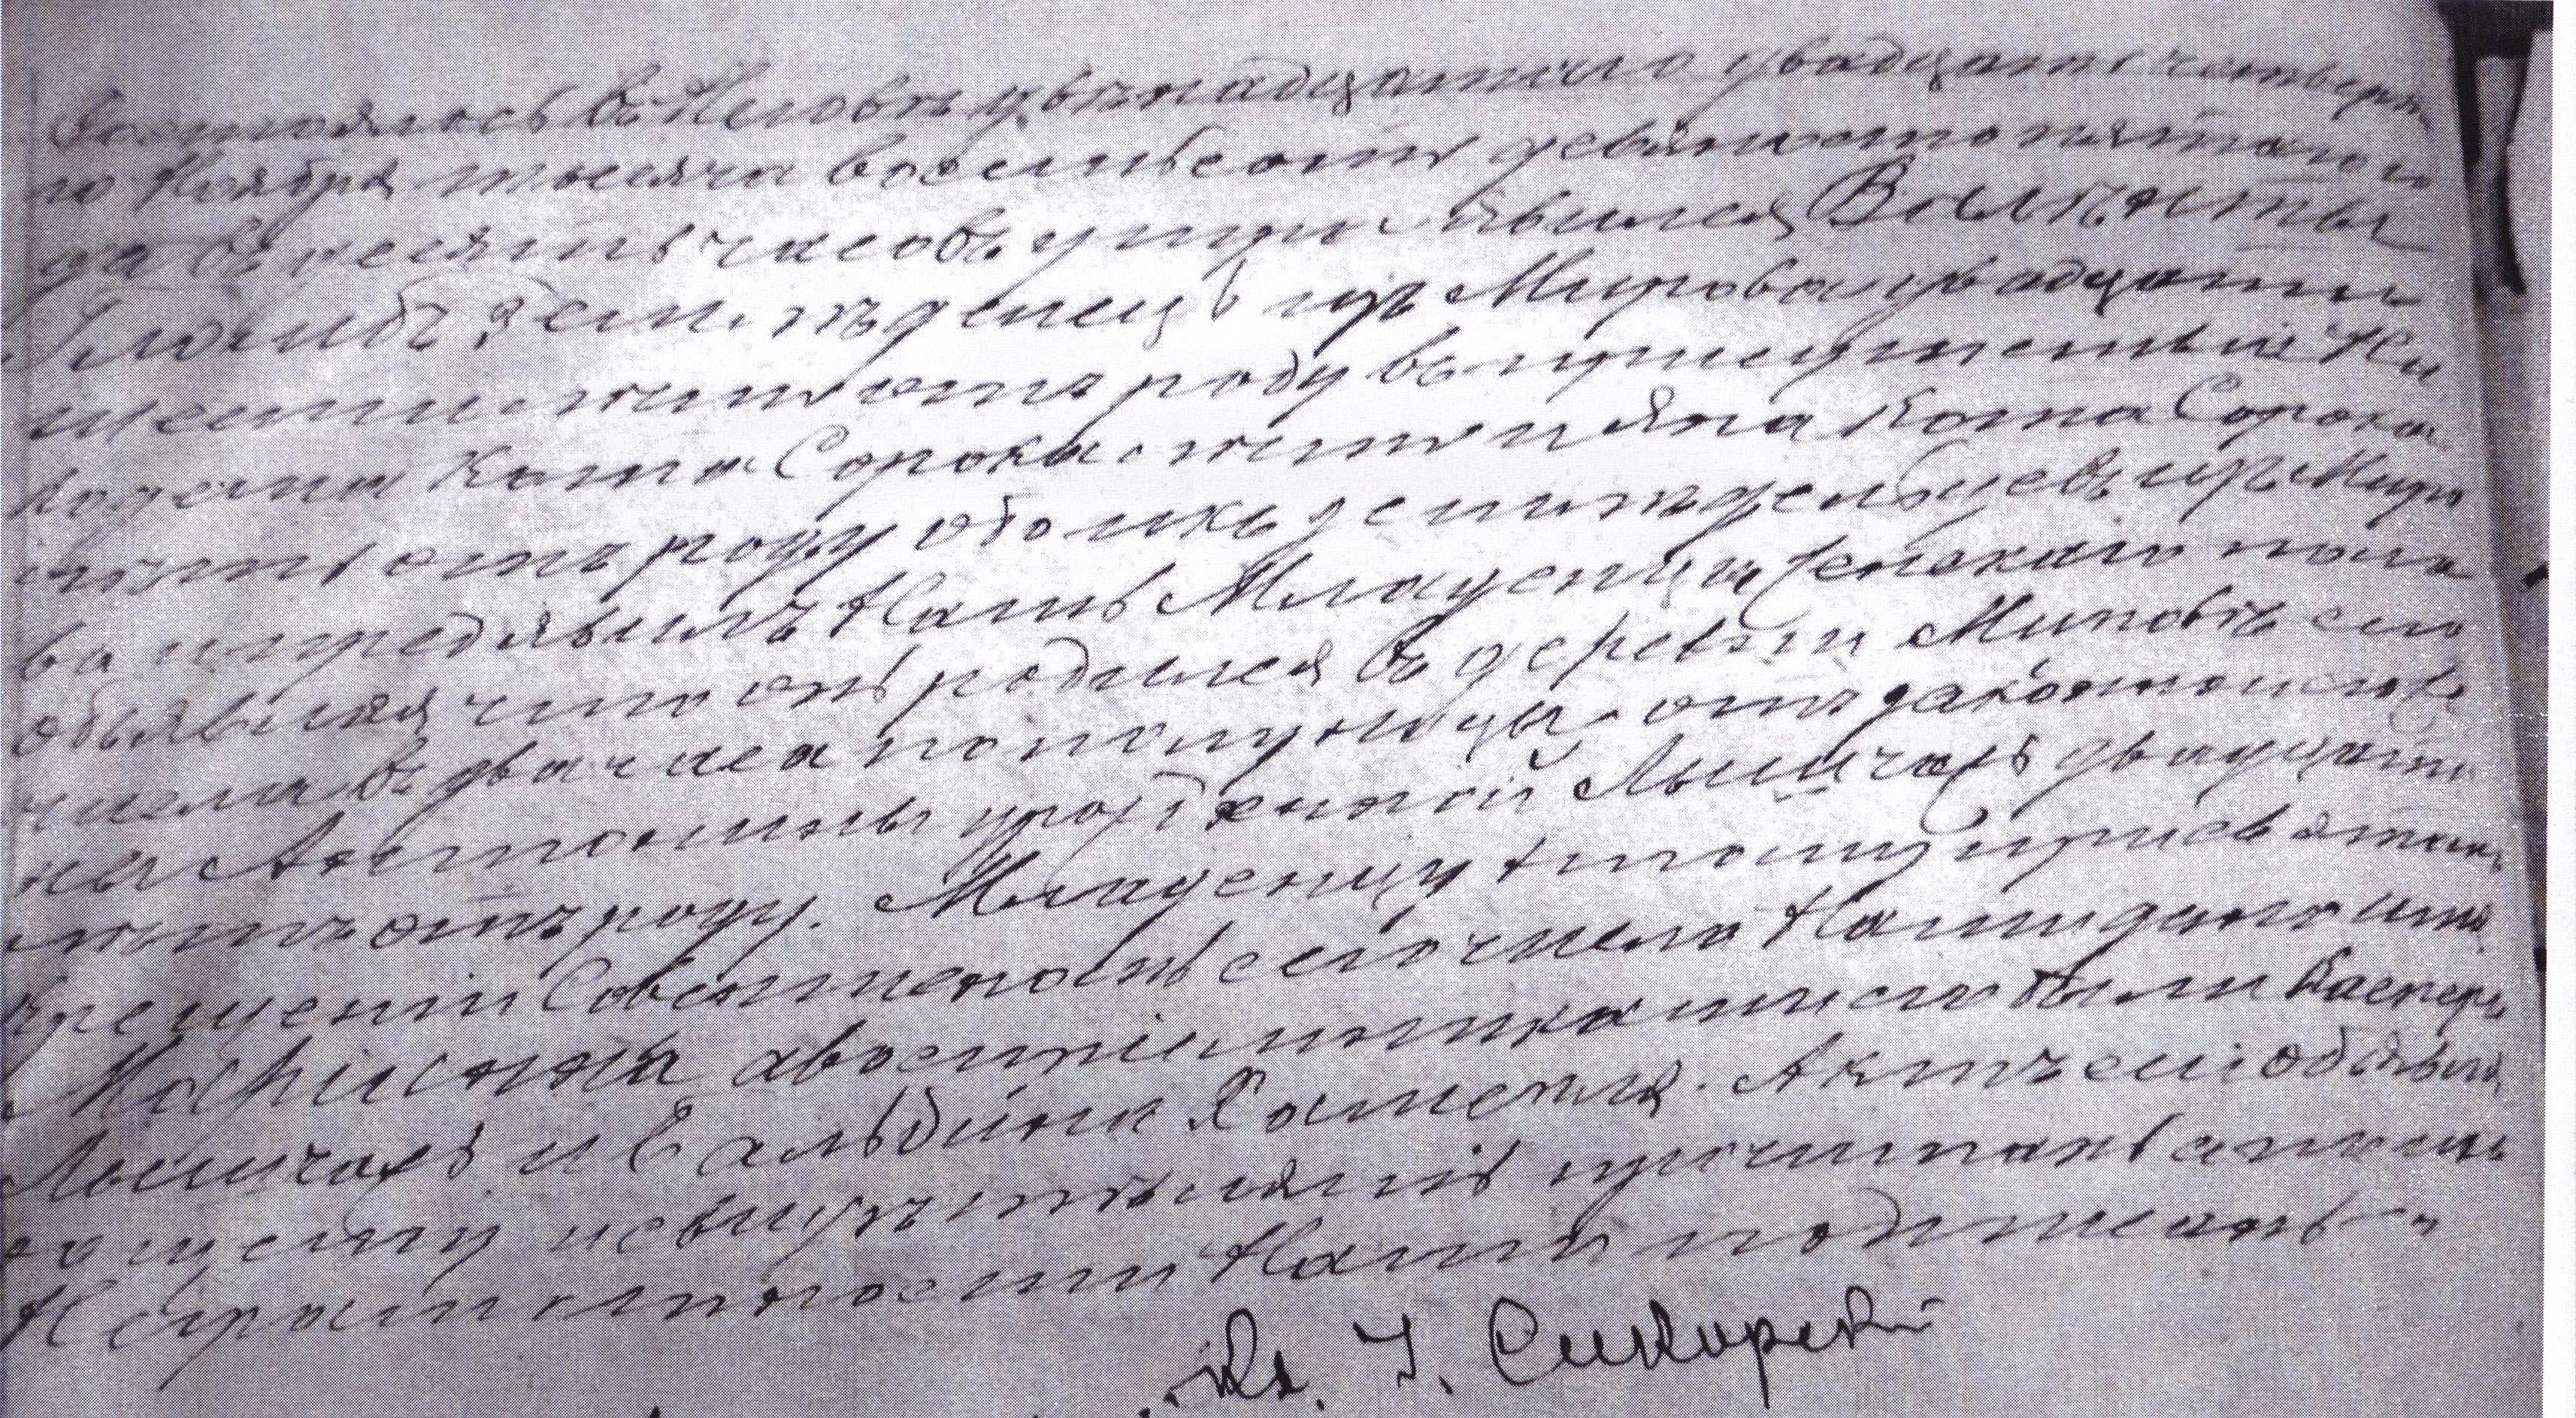 Состоялось въ Неговѣ двѣнадцатаго двадцать четверта
го Ноября тысяча восемьсотъ девяносто пятаго го
да въ десять часовъ утра. Явился Валѣнты
земледѣлецъ изъ Мирова двадцати
шести лѣтъ отъ роду въ присутствіе Ни
кодема Кота Сорока лѣтъ и Яна Кота Сорока
лѣтъ отъ роду обоихъ земледѣльцевъ изъ Миро
ва и предъявилъ Намъ Младенца женскаго пола
объявляя что онъ родился въ деревни Мировѣ сего
числа въ два часа пополуночи отъ законной его же
ны Антонины урожденной двадцати
лѣтъ отъ роду. Младенцу этому при святомъ
крещеніи Совершенномъ сего числа Нами дано имя
Маріанна а воспріемниками его были Касперъ
и Бальбина. Актъ сей объявля
ющему и свидѣтелямъ прочитанъ а по ихъ
Неграмотности Нами подписанъ
Кс. І. Сикорскій